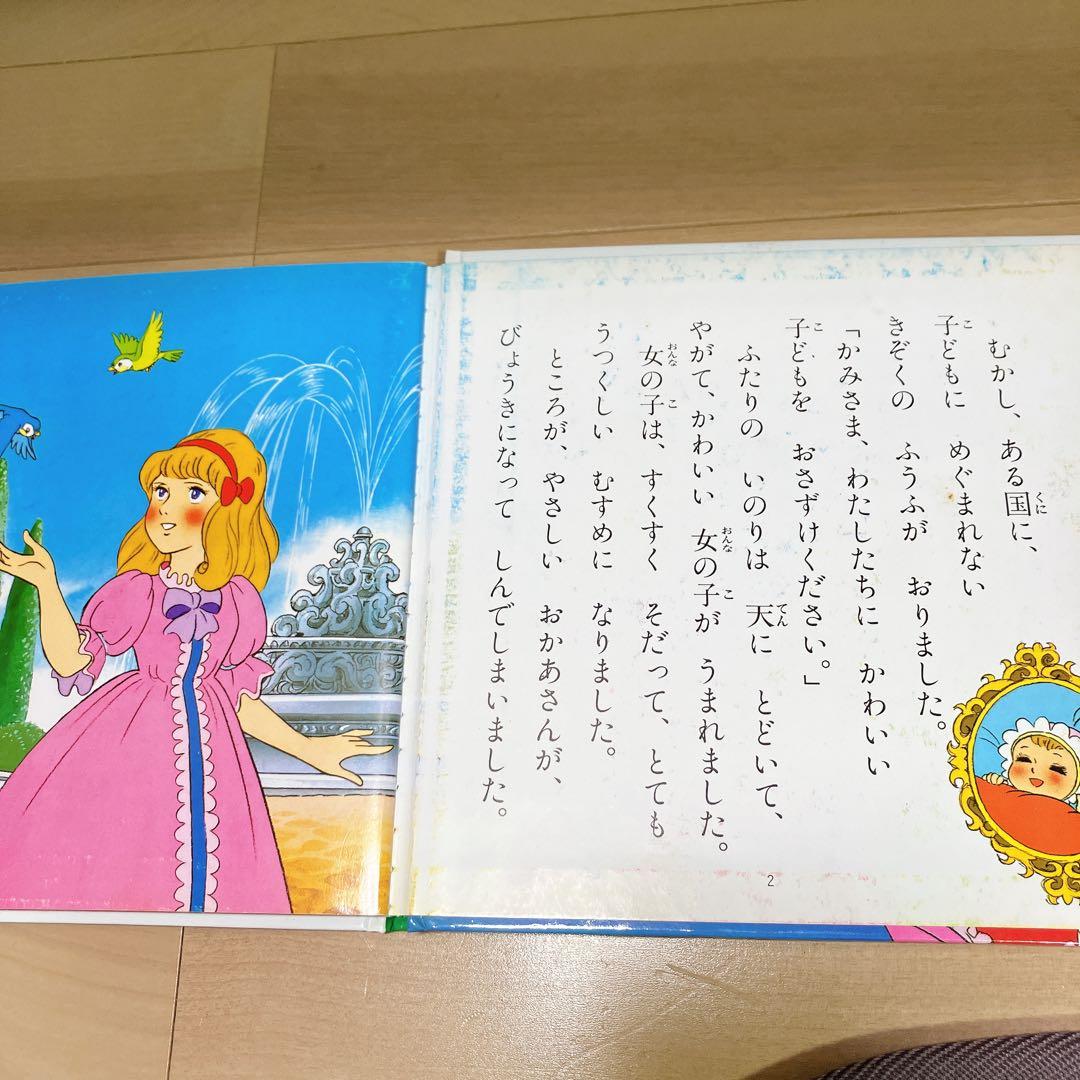 むかし、ある国に、
子どもに めぐまれない
きぞくの ふうふが おりました。
「かみさま、わたしたちに かわいい
子どもを おさずけください。」
ふたりの いのりは 天に とどいて、
やがて、かわいい 女の子が うまれました。
女の子は、すくすく そだって、とても
うつくしい むすめに なりました。
ところが、やさしい おかあさんが、
びょうきになって しんでしまいました。
2